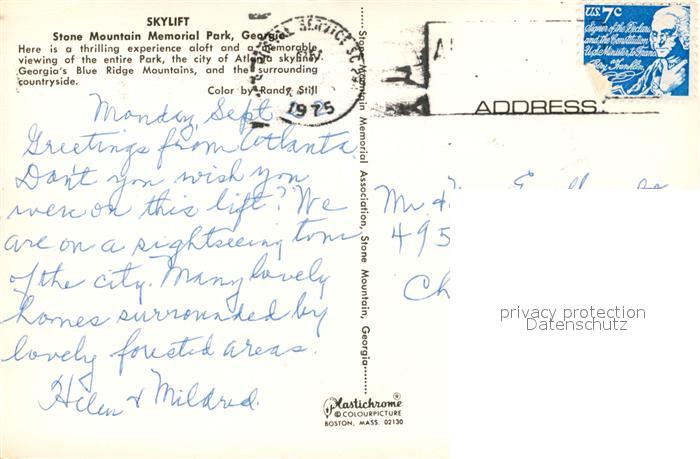 SKYLIFT
Stone Mountain Memorial Park, Georgia
Here is a thrilling experience aloft and a memorable
viewing of the entire Park, the city of Atlanta skyline,
Georgia's Blue Ridge Mountains, and the surrounding
countryside.
Color by Randy Still
Monday, Sept
Greetings from Atlanta
Don't you wish you
were on this lift? We
are on a sightseeing tour
of the city. Many lovely
homes surrounded by
lovely forested areas.
Helen & Mildred.
Stone Mountain Memorial Association, Stone Mountain, Georgia
Plastichrome
© COLOURPICTURE
BOSTON, MASS. 02130
1975
ADDRESS:
U.S. 7c
Signer of the Declara
and the Constitution
Minister to France
Franklin
Mr &
495
Ch
privacy protection
Datenschutz